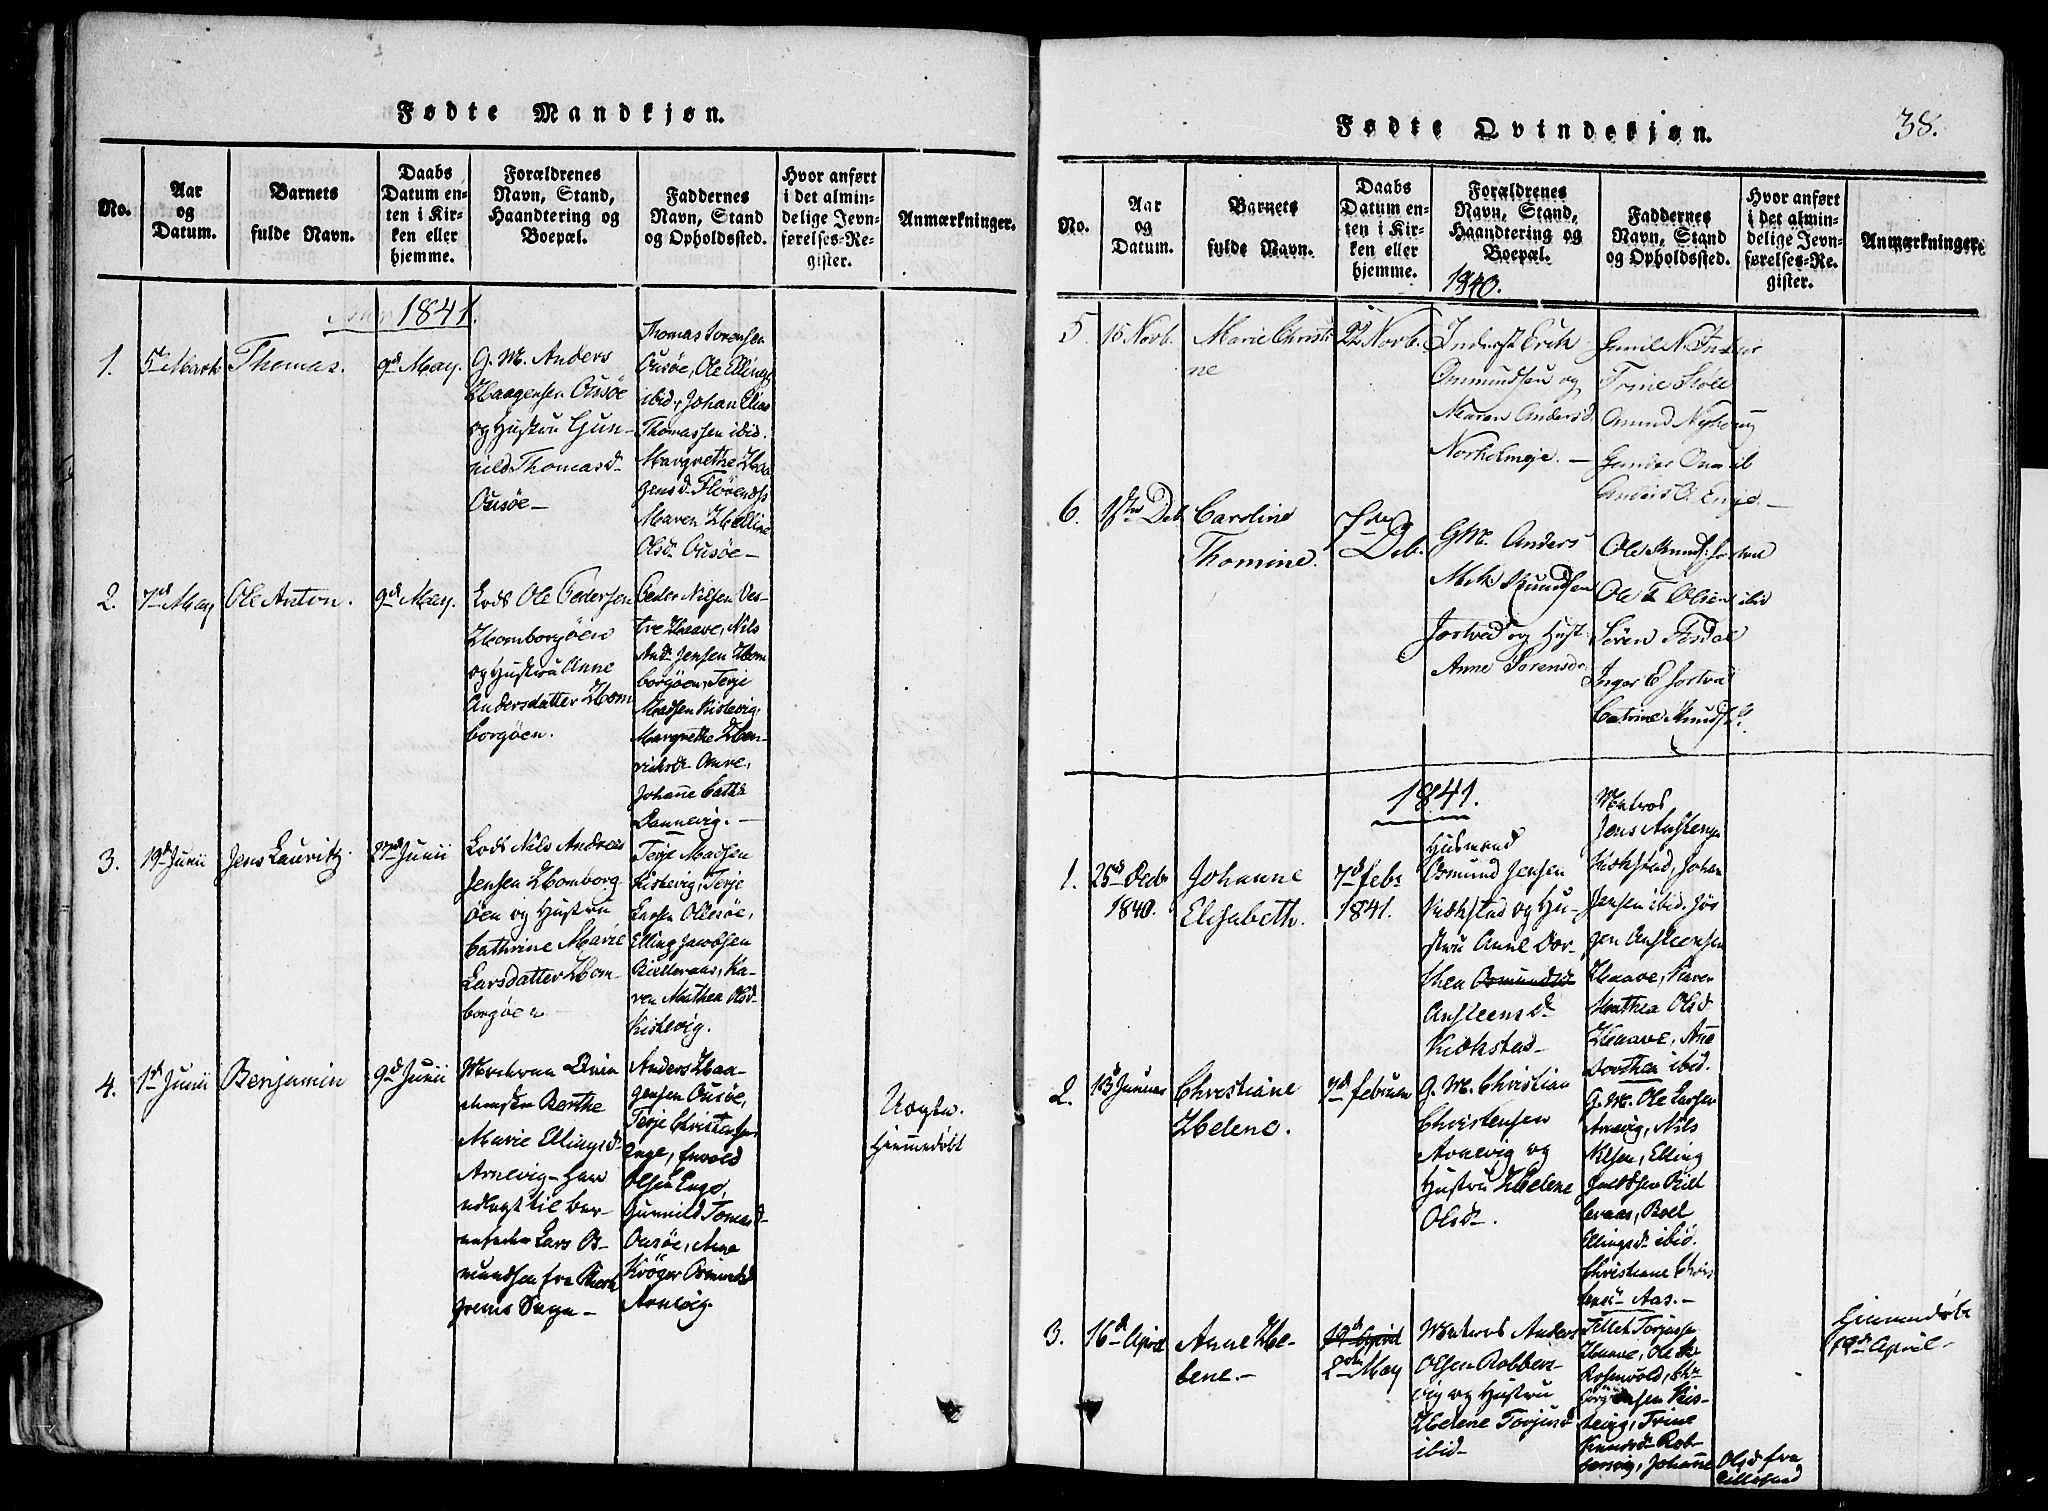 Fødte Mandkjøn.
No.
Aar
og
Datum.
Barnets
fulde Navn.
Daabs
Datum en-
ten i Kir-
ken eller
hjemme.
Forældrenes
Navn, Stand,
Haandtering og
Boepæl.
Faddernes
Navn, Stand
og Opholdssted.
Hvor anført
i det almin-
delige Jevn-
førelses-Re-
gister.
Anmærkninger.
1841.
1.
5te Marts
Thomas.
9d May.
G. M. Anders
Haagensen Ousøe
og Hustru Gun-
nild Thomasd.
Ousøe
Thomas Sørensen
Ousøe, Ole Ellings
ibid, Johan Elias
Thomassen ibid.
Margrethe Haa
gensd.
Maren Helline
Olsd. Ousøe
2.
7d May
Ole Anton.
9d May.
Lods Ole Pedersen
Homborgøen
og Hustru Anne
Andersdatter Hom
borgøen.
Peder Nilsen Ves-
tre Haave, Nils
And. Jensen Hom
borgøen, Terje
Madsen Kislevig,
Margrethe Hen-
richsd.
Johanne Cath.
Dannevig.
3.
19d Junii
Jens Lauritz.
27d Junii
Lods Nils Andreas
Jensen Homborg
øen og Hustru
Cathrine Marie
Larsdatter Hom-
borgøen
Terje Madsen
Kislevig, Terje
Larsen
Elling Jacobsen
Ka-
ren Mathea Olsd.
Kislevig.
4.
1d Junii
Benjamin
9d Junii
Berthe
Marie Ellingsd.
Arnevig
til Bar-
nefader Lars O-
mundsen fra
Sogn
Anders Haa-
gensen Ousøe,
Terje Christensen
Enge,
Olsen Enge,
Gunnild Tomasd.
Ousøe, Anne
Krøger
Arnevig.
Uægte.
Hiemmedøbt
Fødte Qvindekjøn.
38.
No.
Aar
og
Datum.
Barnets
fulde Navn.
Daabs
Datum en-
ten i Kir-
ken eller
hjemme.
Forældrenes
Navn, Stand,
Haandtering og
Boepæl.
Faddernes
Navn, Stand
og Opholdssted.
Hvor anført
i det almin-
delige Jevn-
førelses-Re-
gister.
Anmærkninger.
1840.
5.
15 Novb.
Marie Christi
ne
22 Novb.
Inderst Erik
Ommundsen og
Maren Andersd.
Norholmeje.
Trine
6.
Deb.
Caroline
Thomine.
7de
Deb.
GM. Anders
Jortved og Hust.
Anne Sørensdr.
Ole Knuds. Jortved
Ole T Olsen ibid
Søren
Inger E Jortved
Catrine Knudsd.
1841.
1.
25d Decbr
1840.
Johanne
Elisabeth.
7d febr
1841.
Husmand
Osmund Jensen
og Hu-
stru Anne Dor-
thea Osmundsd.
Ansteensd.
Matros
Jens
Johan
Jensen ibid. Jør
gen Ansteensen
Haave, Karen
Mathea Olsd.
Haave, Ane
Dorthea ibid.
2.
13
Christiane
Helene.
7d februar
G. M. Christian
Christensen
Arnevig og
Hustru Helene
Olsd.
G. M. Ole Larsen
Arnevig, Nils
Nilsen, Elling
Boel
Ellingsd. ibid.
Christiane Chris
tensd. Aas.
3.
16d April
Anne He-
lene.
19d April
2den May
Matros Anders
Olsen Robbers-
vig og Hustru
Helene Torjusd.
ibid
Tellef Torjussen
Haave, Ole
Rosenvold,
Kis-
levig, Trine
Knudsd. Rob-
bersvig, Johanne
Olsd. fra
Lillesand
Hiemmedøbt
19d April